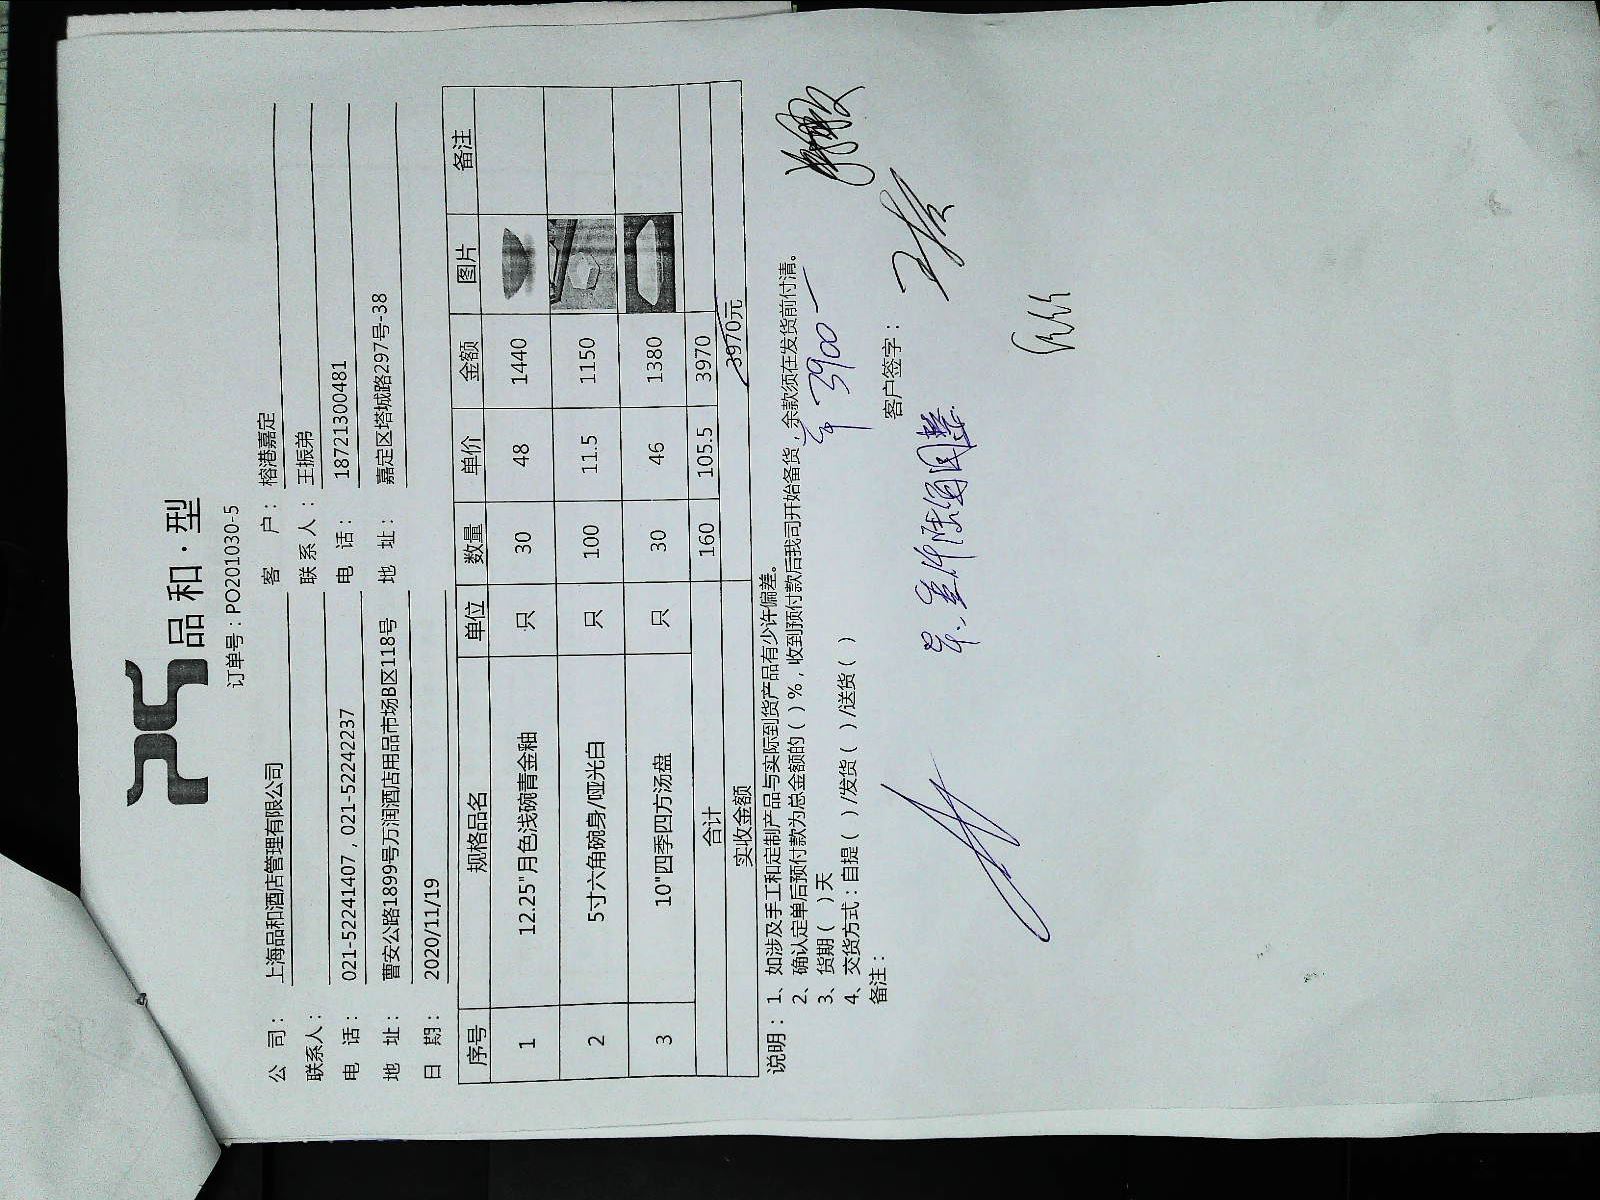 品和·型
订单号：PO201030-5
公 司： 上海品和酒店管理有限公司 客 户： 榕港嘉定
联系人： 联系人： 王振弟
电 话： 021-52241407，021-52242237 电 话： 18721300481
地 址： 曹安公路1899号万润酒店用品市场B区118号 地 址： 嘉定区塔城路297号-38
日 期： 2020/11/19
序号 规格品名 单位 数量 单价 金额 图片 备注
1 12.25"月色浅碗青金釉 只 30 48 1440
2 5寸六角碗身/哑光白 只 100 11.5 1150
3 10"四季四方汤盘 只 30 46 1380
合计 160 105.5 3970
实收金额 3970元
说明：1、如涉及手工和定制产品与实际到货产品有少许偏差。
2、确认定单后预付款为总金额的（ ）%，收到预付款后我司开始备货，余款须在发货前付清。
3、货期（ ）天
4、交货方式：自提（ ）/发货（ ）/送货（ ）
备注：
3900
客户签字：